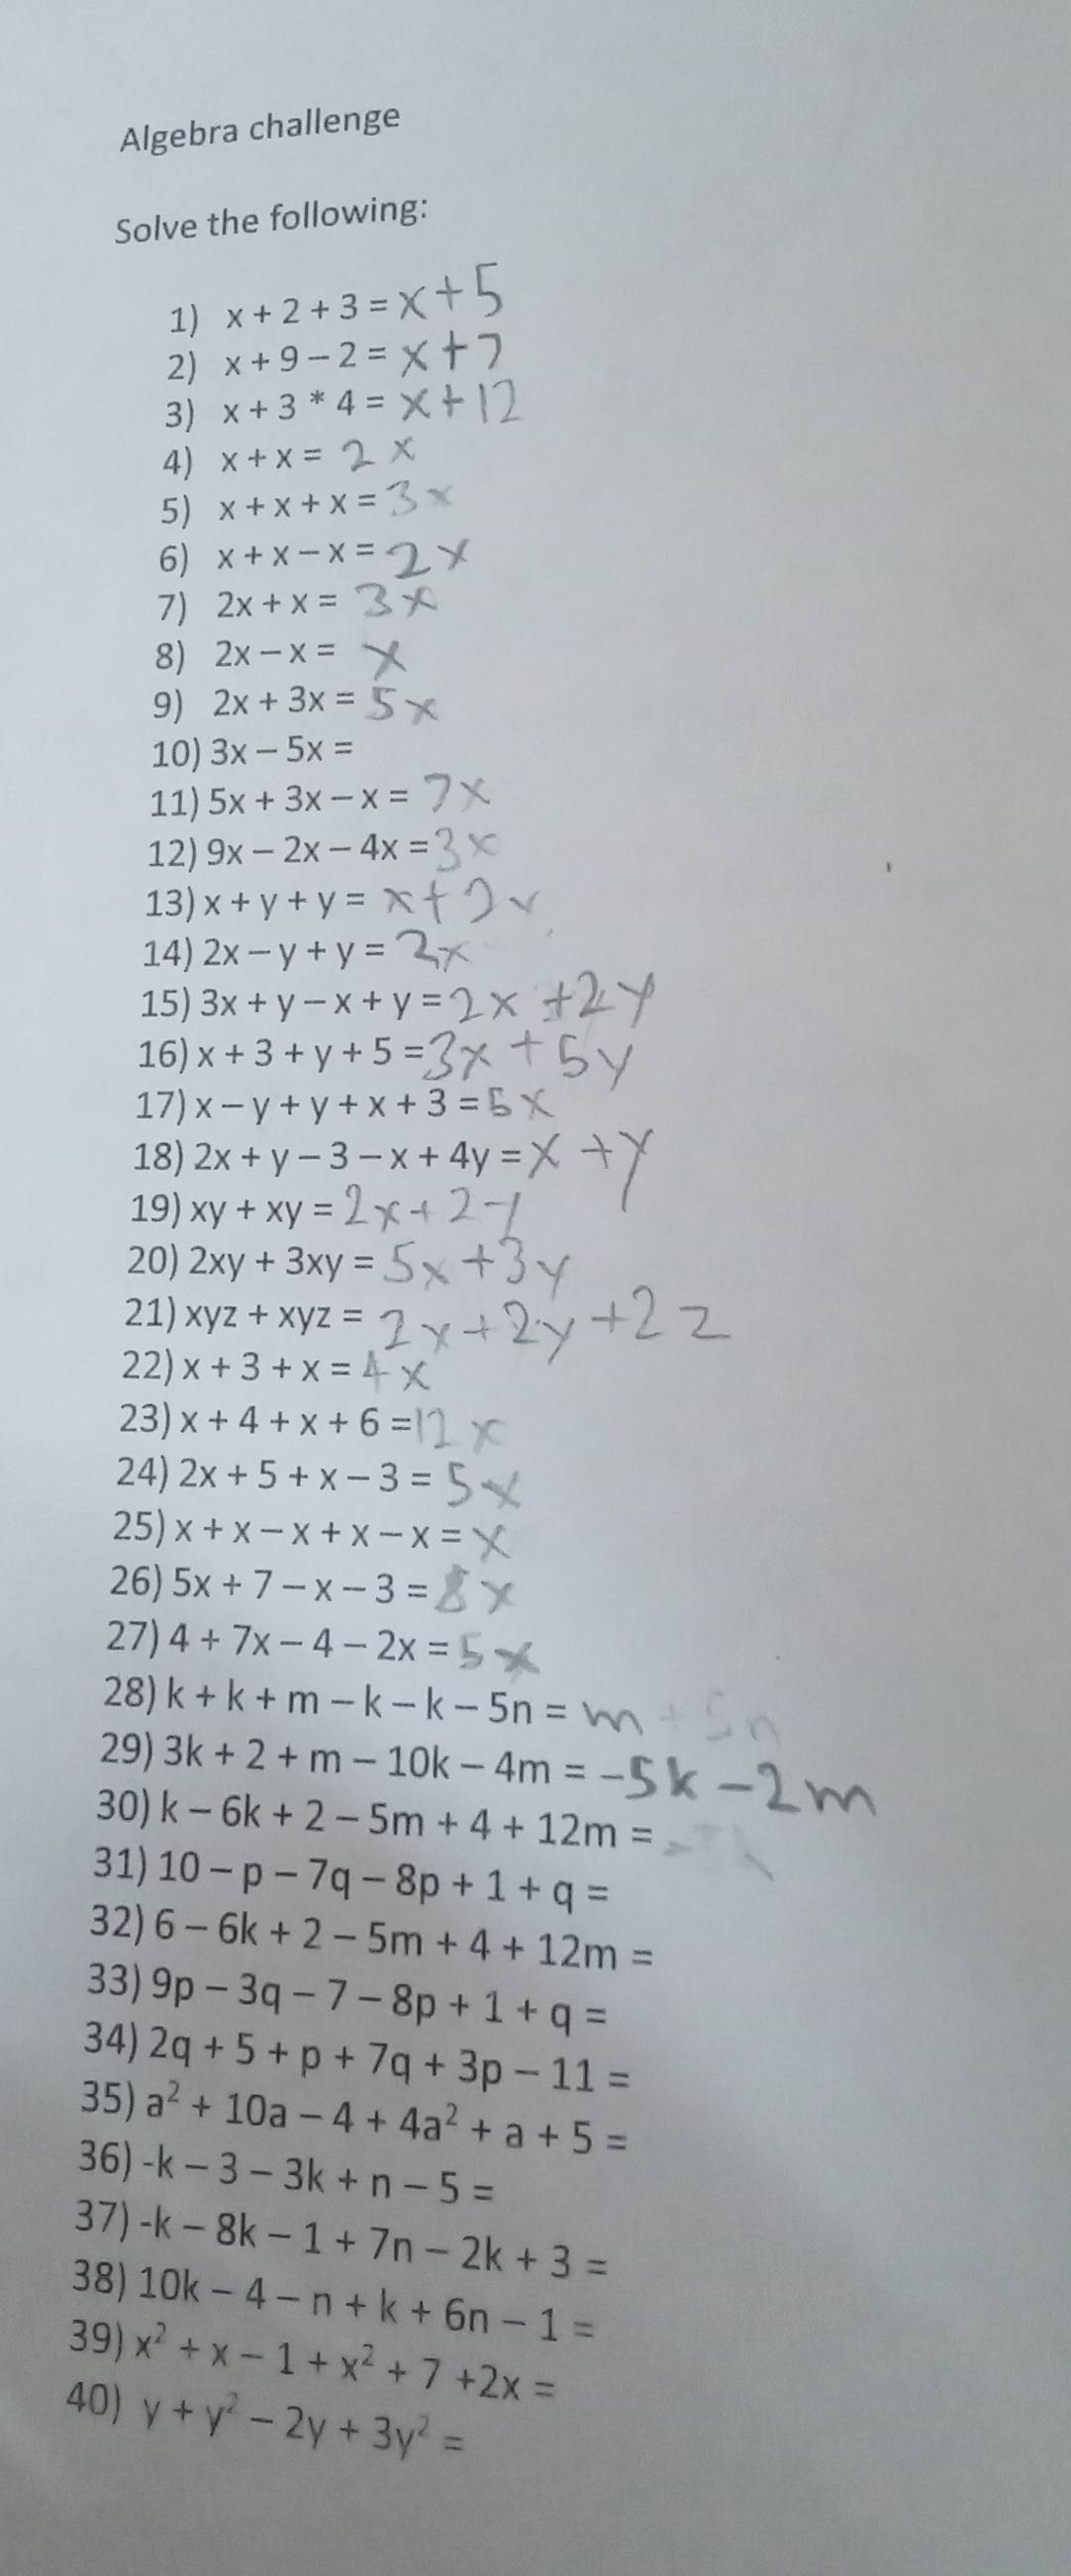 Algebra challenge
Solve the following:
1) x + 2 + 3 = x + 5
2) x + 9 – 2 = x + 7
3) x + 3 * 4 = x + 12
4) x + x = 2x
5) x + x + x = 3x
6) x + x – x = 2x
7) 2x + x = 3x
8) 2x – x = x
9) 2x + 3x = 5x
10) 3x – 5x =
11) 5x + 3x – x = 7x
12) 9x – 2x – 4x = 3x
13) x + y + y = x + 2y
14) 2x – y + y = 2x
15) 3x + y – x + y = 2x + 2y
16) x + 3 + y + 5 = 3x + 5y
17) x – y + y + x + 3 = 5x
18) 2x + y – 3 – x + 4y = x + y
19) xy + xy = 2x + 2y
20) 2xy + 3xy = 5x + 3y
21) xyz + xyz = 2x + 2y + 2z
22) x + 3 + x = 4x
23) x + 4 + x + 6 = 12x
24) 2x + 5 + x – 3 = 5x
25) x + x – x + x – x = x
26) 5x + 7 – x – 3 = 8x
27) 4 + 7x – 4 – 2x = 5x
28) k + k + m – k – k – 5n = m + 5n
29) 3k + 2 + m – 10k – 4m = -5k – 2m
30) k – 6k + 2 – 5m + 4 + 12m =
31) 10 – p – 7q – 8p + 1 + q =
32) 6 – 6k + 2 – 5m + 4 + 12m =
33) 9p – 3q – 7 – 8p + 1 + q =
34) 2q + 5 + p + 7q + 3p – 11 =
35) a² + 10a – 4 + 4a² + a + 5 =
36) -k – 3 – 3k + n – 5 =
37) -k – 8k – 1 + 7n – 2k + 3 =
38) 10k – 4 – n + k + 6n – 1 =
39) x² + x – 1 + x² + 7 +2x =
40) y + y² – 2y + 3y² =